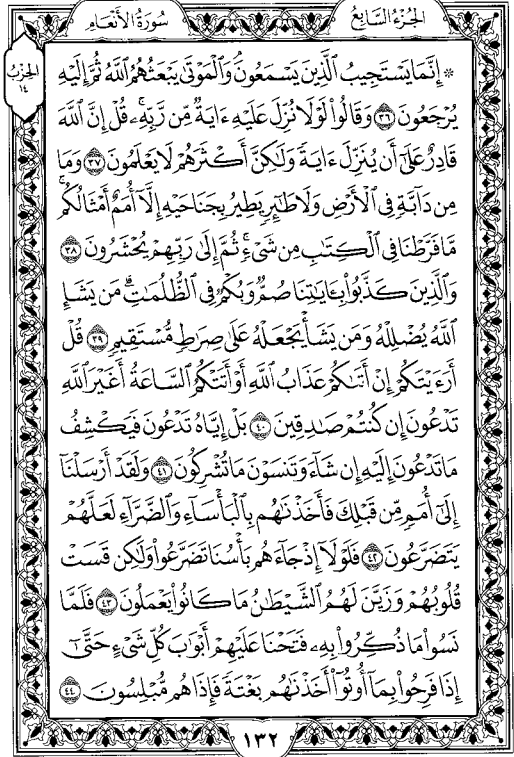 الجُزءُ السَّابِعُ
سُورَةُ الأَنْعَام
الحِزْبُ
١٤
۞ إِنَّمَا يَسْتَجِيبُ ٱلَّذِينَ يَسْمَعُونَۘ وَٱلْمَوْتَىٰ يَبْعَثُهُمُ ٱللَّهُ ثُمَّ إِلَيْهِ
يُرْجَعُونَ ٣٦ وَقَالُوا۟ لَوْلَا نُزِّلَ عَلَيْهِ ءَايَةٌ مِّن رَّبِّهِۦۚ قُلْ إِنَّ ٱللَّهَ
قَادِرٌ عَلَىٰٓ أَن يُنَزِّلَ ءَايَةً وَلَٰكِنَّ أَكْثَرَهُمْ لَا يَعْلَمُونَ ٣٧ وَمَا
مِن دَآبَّةٍ فِى ٱلْأَرْضِ وَلَا طَٰٓئِرٍ يَطِيرُ بِجَنَاحَيْهِ إِلَّآ أُمَمٌ أَمْثَالُكُمۚ
مَّا فَرَّطْنَا فِى ٱلْكِتَٰبِ مِن شَىْءٍۚ ثُمَّ إِلَىٰ رَبِّهِمْ يُحْشَرُونَ ٣٨
وَٱلَّذِينَ كَذَّبُوا۟ بِـَٔايَٰتِنَا صُمٌّ وَبُكْمٌ فِى ٱلظُّلُمَٰتِۗ مَن يَشَإِ
ٱللَّهُ يُضْلِلْهُ وَمَن يَشَأْ يَجْعَلْهُ عَلَىٰ صِرَٰطٍ مُّسْتَقِيمٍ ٣٩ قُلْ
أَرَءَيْتَكُمْ إِنْ أَتَىٰكُمْ عَذَابُ ٱللَّهِ أَوْ أَتَتْكُمُ ٱلسَّاعَةُ أَغَيْرَ ٱللَّهِ
تَدْعُونَ إِن كُنتُمْ صَٰدِقِينَ ٤٠ بَلْ إِيَّاهُ تَدْعُونَ فَيَكْشِفُ
مَا تَدْعُونَ إِلَيْهِ إِن شَآءَ وَتَنسَوْنَ مَا تُشْرِكُونَ ٤١ وَلَقَدْ أَرْسَلْنَآ
إِلَىٰٓ أُمَمٍ مِّن قَبْلِكَ فَأَخَذْنَٰهُم بِٱلْبَأْسَآءِ وَٱلضَّرَّآءِ لَعَلَّهُمْ
يَتَضَرَّعُونَ ٤٢ فَلَوْلَآ إِذْ جَآءَهُم بَأْسُنَا تَضَرَّعُوا۟ وَلَٰكِن قَسَتْ
قُلُوبُهُمْ وَزَيَّنَ لَهُمُ ٱلشَّيْطَٰنُ مَا كَانُوا۟ يَعْمَلُونَ ٤٣ فَلَمَّا
نَسُوا۟ مَا ذُكِّرُوا۟ بِهِۦ فَتَحْنَا عَلَيْهِمْ أَبْوَٰبَ كُلِّ شَىْءٍ حَتَّىٰٓ
إِذَا فَرِحُوا۟ بِمَآ أُوتُوٓا۟ أَخَذْنَٰهُم بَغْتَةً فَإِذَا هُم مُّبْلِسُونَ ٤٤
١٣٢